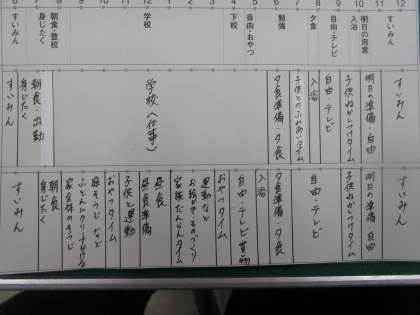 6 7 8 9 10 11 12 1 2 3 4 5 6 7 8 9 10 11 12
すいみん
身じたく
朝食・登校
学校
下校
自由・おやつ
勉強
夕食
自由・テレビ
入浴
明日の用意
すいみん
すいみん
身じたく
朝食・出勤
学校(仕事)
夕食準備・夕食
子供とのふれあいタイム
入浴
自由・テレビ
子供ねかしつけタイム
明日の準備・自由
すいみん
すいみん
身じたく
朝食
家全体のそうじ
ふとんにクリーナーかける
庭そうじなど
おやつタイム
子供と運動
昼食準備
昼食
家族だんらんタイム
お絵かき・ものづくり
運動など
おやつタイム
自由・テレビ
入浴
夕食準備・夕食
自由・テレビ
子供ねかしつけタイム
明日の準備・自由
すいみん